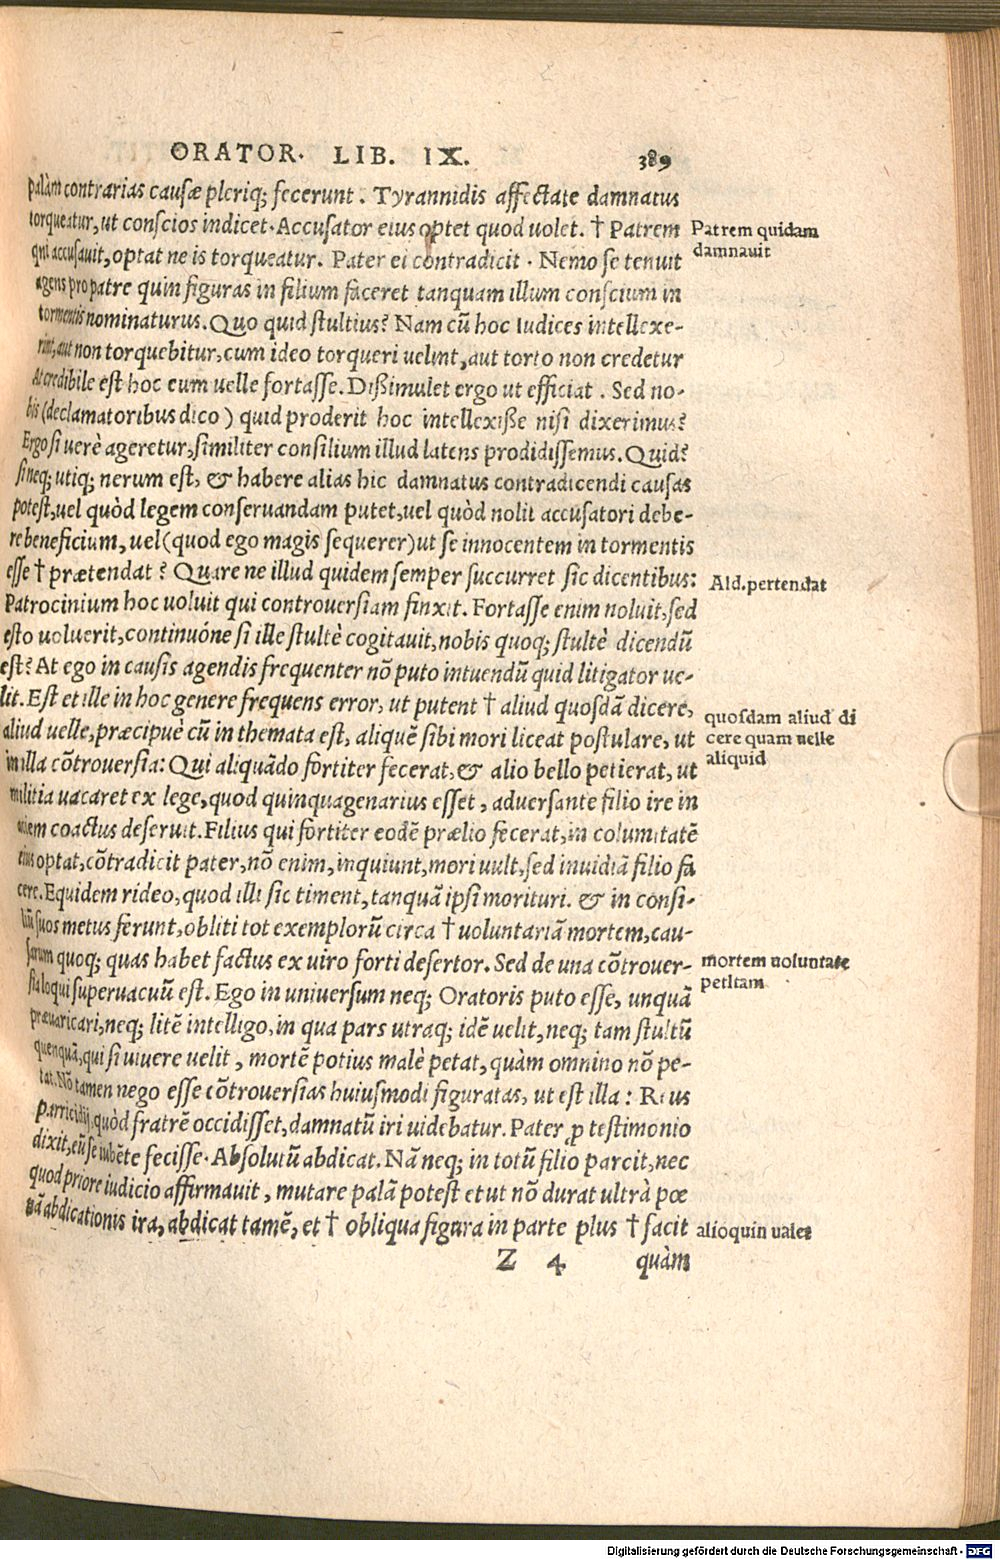 ORATOR. LIB. IX. 389
palàm contrarias causæ pleriq; fecerunt. Tyrannidis affectate damnatus
torqueatur, ut conscios indicet. Accusator eius optet quod uolet. † Patrem
Patrem quidam
damnauit
qui accusauit, optat ne is torqueatur. Pater ei contradicit. Nemo se tenuit
agens pro patre quin figuras in filium faceret tanquam illum conscium in
tormentis nominaturus. Quo quid stultius? Nam cũ hoc Iudices intellexe-
rint, aut non torquebitur, cum ideo torqueri uelint, aut torto non credetur
At credibile est hoc eum uelle fortasse. Dißimulet ergo ut efficiat. Sed no-
bis (declamatoribus dico) quid proderit hoc intellexiße nisi dixerimus?
Ergo si uerè ageretur, similiter consilium illud latens prodidissemus. Quid?
si neq; utiq; nerum est, & habere alias hic damnatus contradicendi causas
potest, uel quòd legem conseruandam putet, uel quòd nolit accusatori debe-
re beneficium, uel (quod ego magis sequerer) ut se innocentem in tormentis
esse † prætendat? Quare ne illud quidem semper succurret sic dicentibus:
Ald. pertendat
Patrocinium hoc uoluit qui controuersiam finxit. Fortasse enim noluit, sed
esto uoluerit, continuóne si ille stultè cogitauit, nobis quoq; stultè dicendũ
est? At ego in causis agendis frequenter nõ puto intuendũ quid litigator ue-
lit. Est et ille in hoc genere frequens error, ut putent † aliud quosdã dicere,
quosdam aliud di
cere quam uelle
aliquid
aliud uelle, præcipuè cũ in themata est, aliquẽ sibi mori liceat postulare, ut
in illa cõtrouersia: Qui aliquãdo fortiter fecerat, & alio bello petierat, ut
militia uacaret ex lege, quod quinquagenarius esset, aduersante filio ire in
aciem coactus deseruit. Filius qui fortiter eodẽ prælio fecerat, in columitatẽ
eius optat, cõtradicit pater, nõ enim, inquiunt, mori uult, sed inuidiã filio fa
cere. Equidem rideo, quod illi sic timent, tanquã ipsi morituri. & in consi-
liũ suos metus ferunt, obliti tot exemplorũ circa † uoluntariã mortem, cau-
sarum quoq; quas habet factus ex uiro forti desertor. Sed de una cõtrouer-
mortem uoluntate
petitam
sia loqui superuacuũ est. Ego in uniuersum neq; Oratoris puto esse, unquã
præuaricari, neq; litẽ intelligo, in qua pars utraq; idẽ uelit, neq; tam stultũ
quenquã, qui si uiuere uelit, mortẽ potius malè petat, quàm omnino nõ pe-
tat. Nõ tamen nego esse cõtrouersias huiusmodi figuratas, ut est illa: Reus
parricidij, quòd fratrẽ occidisset, damnatũ iri uidebatur. Pater ꝓ testimonio
dixit, eũ se iubẽte fecisse. Absolutũ abdicat. Nã neq; in totũ filio parcit, nec
quod priore iudicio affirmauit, mutare palã potest et ut nõ durat ultrà pœ
nã abdicationis ira, abdicat tamẽ, et † obliqua figura in parte plus † facit
alioquin ualet
Z 4 quàm
Digitalisierung gefördert durch die Deutsche Forschungsgemeinschaft - DFG